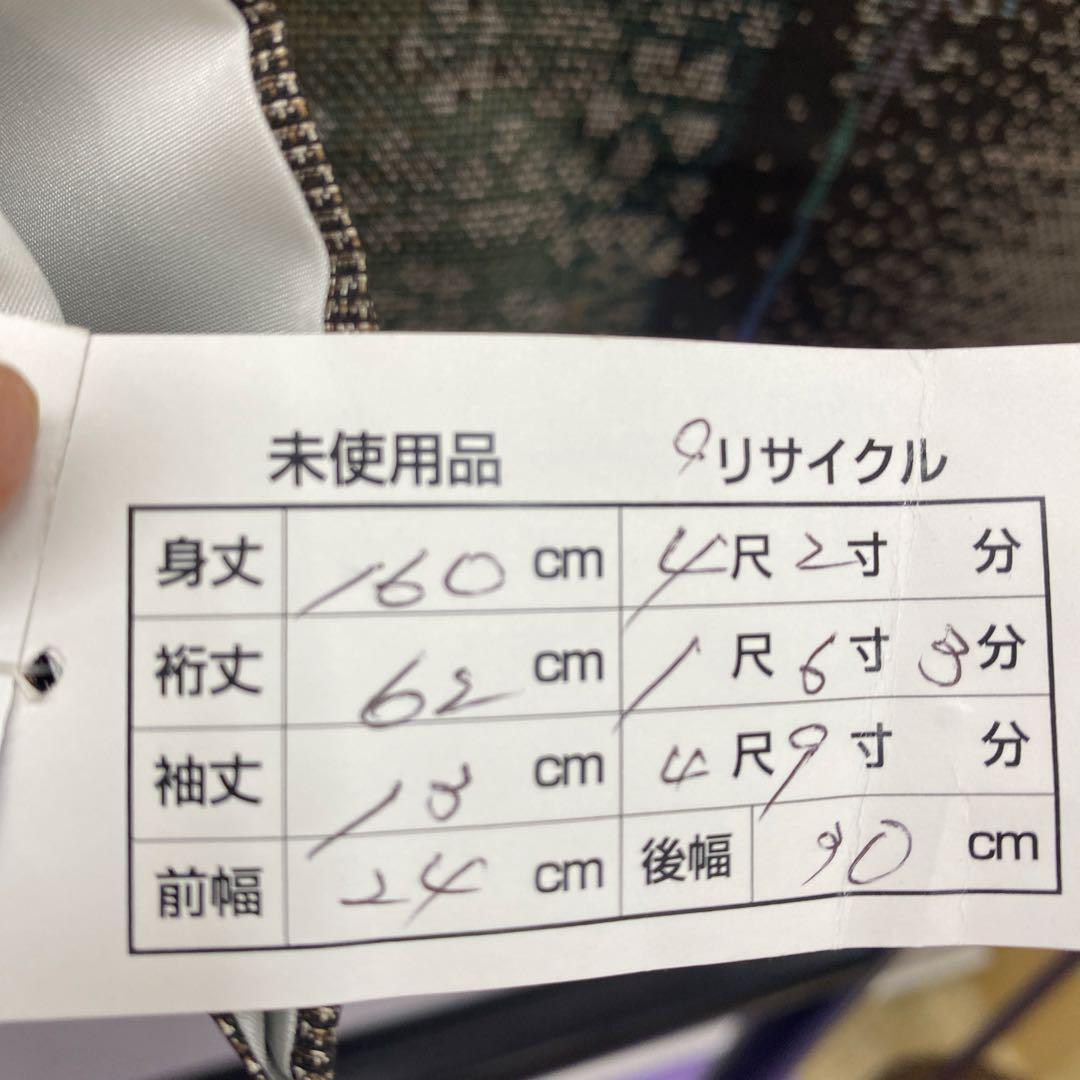 未使用品 9リサイクル
身丈 160 cm 4尺 2寸 分
裄丈 62 cm 1尺 6寸 3分
袖丈 cm 4尺 9寸 分
前幅 24 cm 後幅 cm